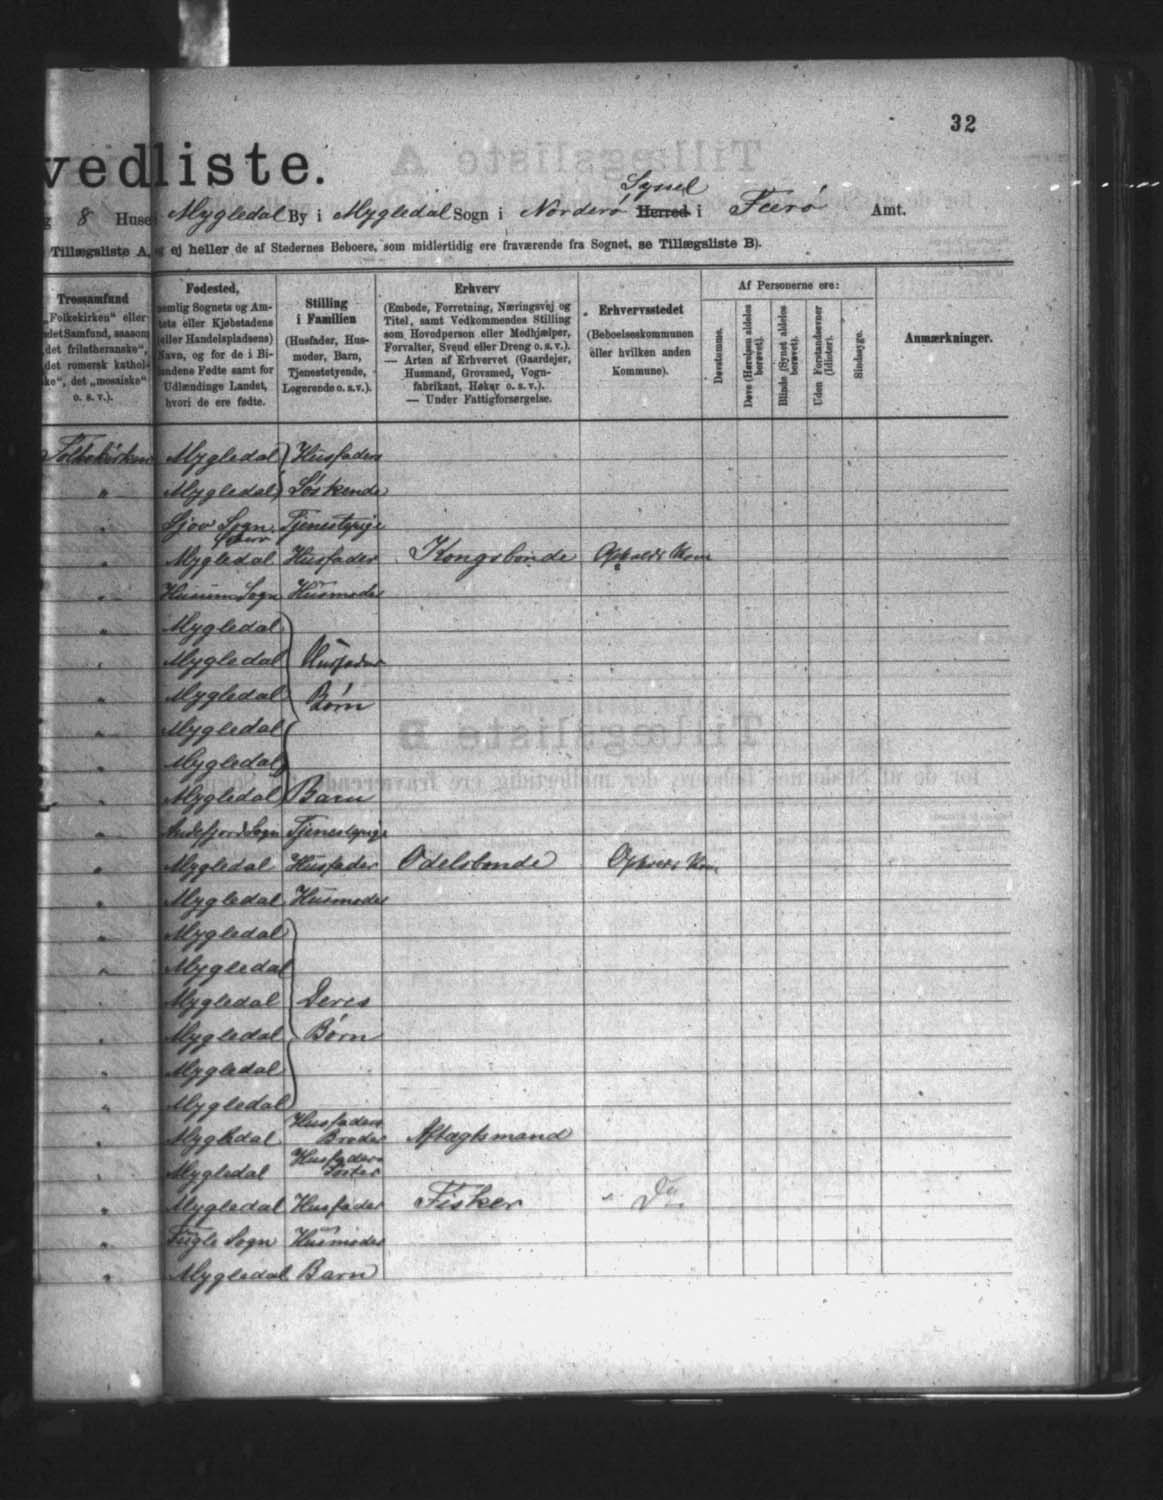 32
vedliste.
8 Huse Mygledal By i Mygledal Sogn i Norderø Herred i Færø Amt.
Syssel
Tillægsliste A, og ej heller de af Stedernes Beboere, som midlertidig ere fraværende fra Sognet, se Tillægsliste B).
Trossamfund
„Folkekirken" eller
det Samfund, saasom
„det frilutheranske",
„det romersk katholske", det „mosaiske"
o. s. v.).
Fødested,
nemlig Sognets og Amtets eller Kjøbstadens
(eller Handelspladsens)
Navn, og for de i Bilandene Fødte samt for
Udlændinge Landet,
hvori de ere fødte.
Stilling
i Familien
(Husfader, Husmoder, Barn,
Tjenestetyende,
Logerende o. s. v.).
Erhverv
(Embede, Forretning, Næringsvej og
Titel, samt Vedkommendes Stilling
som Hovedperson eller Medhjælper,
Forvalter, Svend eller Dreng o. s. v.).
— Arten af Erhvervet (Gaardejer,
Husmand, Grovsmed, Vognfabrikant, Høker o. s. v.).
— Under Fattigforsørgelse.
Erhvervsstedet
(Beboelseskommunen
eller hvilken anden
Kommune).
Af Personerne ere:
Døvstumme.
Døve (Hørelsen aldeles
berøvet).
Blinde (Synet aldeles
berøvet).
Uden Forstandsevner
(Idioter).
Sindssyge.
Anmærkninger.
Folkekirken Mygledal Husfaders
" Mygledal Søskende
" Sogn Tjenestepige
Færø
" Mygledal Husfader Kongsbonde Opholds Kom
" Husum Sogn Husmoder
" Mygledal
" Mygledal Husfaders
" Mygledal Børn
" Mygledal
" Mygledal
" Mygledal Barn
" Andefjord Sogn Tjenestepige
" Mygledal Husfader Odelsbonde Opholds Kom
" Mygledal Husmoder
" Mygledal
" Mygledal
" Mygledal Deres
" Mygledal Børn
" Mygledal
" Mygledal
Husfaders
" Mygledal Broder Aftægtsmand
Husfaders
" Mygledal Søster
" Mygledal Husfader Fisker "
" Fugle Sogn Husmoder
" Mygledal Barn